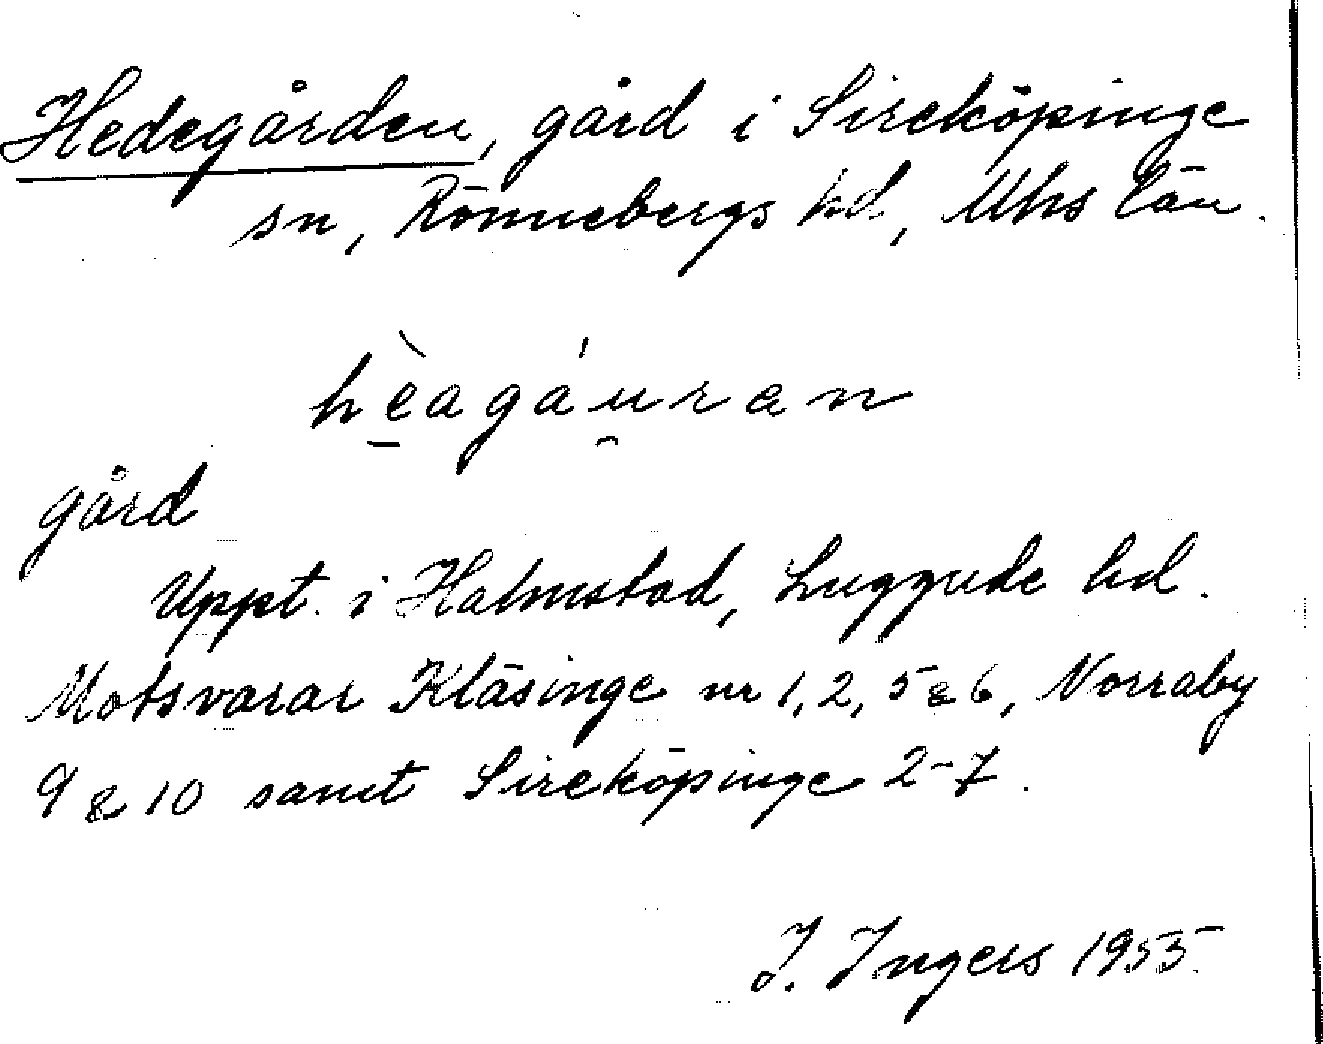 Hedegården, gård i Sireköpinge
sn, Rönnebergs hd, Mhs län.
hèagáuran
gård
Uppt. i Halmstad, Luggude hd.
Motsvarar Kläsinge nr 1, 2, 5 & 6, Norraby
9 & 10 samt Sireköpinge 2-7.
I. Ingers 1955.